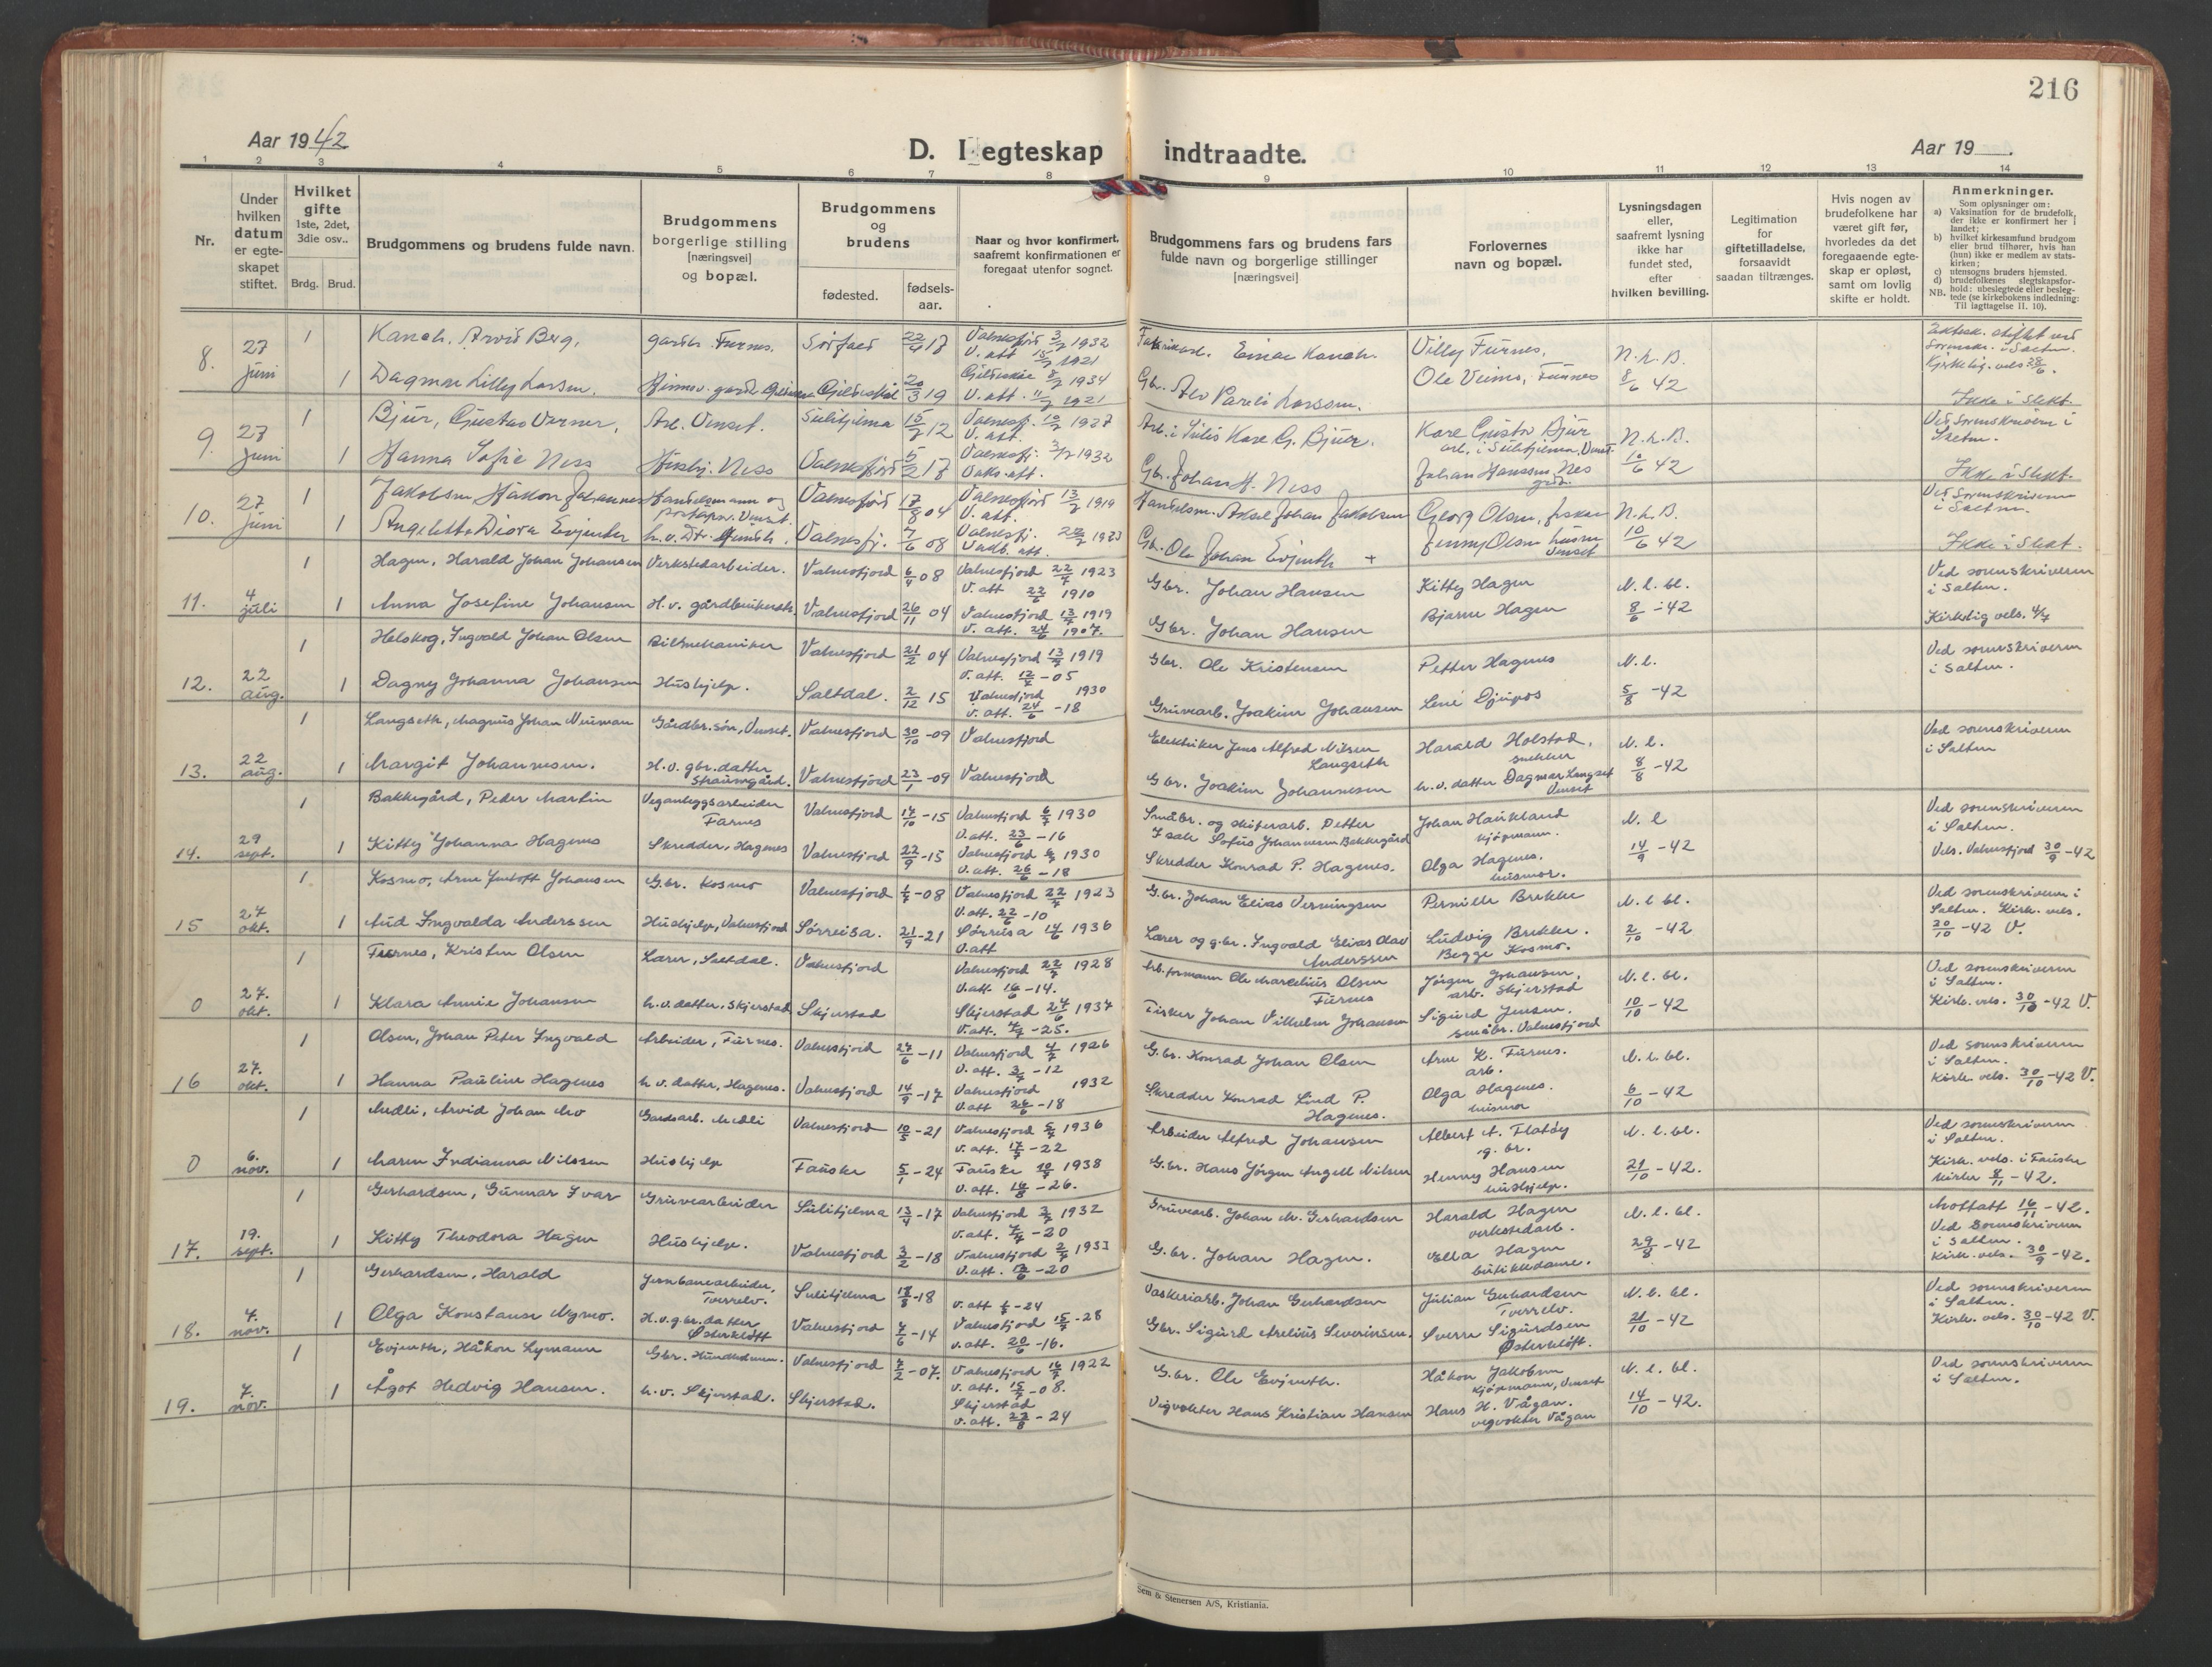 216
Aar 1942
D. I egteskap indtraadte.
Aar 19
1 2 3 4 5 6 7 8 9 10 11 12 13 14
Nr.
Under hvilken datum er egteskapet stiftet.
Hvilket gifte 1ste, 2det, 3die osv..
Brdg. Brud.
Brudgommens og brudens fulde navn.
Brudgommens borgerlige stilling [næringsvei] og bopæl.
Brudgommens og brudens
fødested.
fødselsaar.
Naar og hvor konfirmert, saafremt konfirmationen er foregaat utenfor sognet.
Brudgommens fars og brudens fars fulde navn og borgerlige stillinger [næringsvei]
Forlovernes navn og bopæl.
Lysningsdagen eller, saafremt lysning ikke har fundet sted, efter hvilken bevilling.
Legitimation for giftetilladelse, forsaavidt saadan tiltrænges.
Hvis nogen av brudefolkene har været gift før, hvorledes da det foregaaende egteskap er opløst, samt om lovlig skifte er holdt.
Anmerkninger.
Som oplysninger om:
a) Vaksination for de brudefolk, der ikke er konfirmert her i landet;
b) hvilket kirkesamfund brudgom eller brud tilhører, hvis han (hun) ikke er medlem av statskirken;
c) utensogns bruders hjemsted.
d) brudefolkenes slegtskapsforhold: ubeslegtede eller beslegtede (se kirkebokens indledning:
NB. Til iagttagelse II. 10).
8. 27 juni 1 Arvid Berg, Furnes. 22/4 17 Valnesfjord 3/7 1932 Einar Villy Furnes, N.l.B.
V. att 15/7 1921
1 Dagmar Lilly Larsen. Gildeskål 20/3 19 Gildeskål 8/7 1934 Gbr. Pareli Larsen. Ole Furnes 8/6 42 Ikke i slekt.
9. 27 juni 1 Bjur, Gustav Verner, Arb. Venset. Sulitjelma 15/7 12 1927 Arb. i Sulis Kare G. Bjur. Kare Gustav Bjur arb. i Sulitjelma, N.l.B. Ved sorenskriveren i Salten.
1 Hanna Sofie Ness Husbj. Ness Valnesfjord 5/2 17 Valnesfj. 3/7 1932 Gbr. Johan H. Ness Johan Hanssen Nes 10/6 42 Ikke i slekt.
10. 27 juni 1 Jakobsen Håkon Johannes Handelsmann og Venset. Valnesfjord 17/8 04 Valnesfjord 13/7 1919 Handelsm. Johan Jakobsen Georg Olsen, fisker N.l.B. Ved sorenskriveren i Salten.
V. att.
1 Evjenth Valnesfj. 7/6 08 Valnesfj. 1923 Gbr. Ole Johan Evjenth + Jenny Olsen husm. Venset 10/6 42 Ikke i slekt.
11. 4 juli 1 Hagen, Harald Johan Johansen Verkstedarbeider. Valnesfjord 6/4 08 Valnesfjord 22/7 1923 Gbr. Johan Hansen Kitty Hagen N.l.bl. Ved sorenskriveren i Salten.
V. att 22/6 1910
1 Anna Josefine Johansen H.v. gårdbrukerdtr. Valnesfjord 26/11 04 Valnesfjord 13/7 1919 Gbr. Johan Hansen Bjarne Hagen 8/6 -42 Kirkelig vels. 4/7
V. att. 24/6 1907.
12. 22 aug. 1 Helskog, Ingvald Johan Olsen Bilmekaniker Valnesfjord 21/2 04 Valnesfjord 13/7 1919 Gbr. Ole Kristensen Petter Hagenes N.l. Ved sorenskriveren i Salten.
V. att. 12/7 -05
1 Dagny Johanna Johansen Hushjelp. Saltdal. 2/12 15 Valnesfjord 1930 Gruvearb. Joakim Johansen Lene Djupos 5/8 -42
V. att. 24/6 -18
13. 22 aug. 1 Langseth, Magnus Johan Neuman Gårdbr.søn, Venset. Valnesfjord 30/10 -09 Valnesfjord Elektriker Jens Alfred Nilsen Langseth Harald Holstad, snekker N.l. Ved sorenskriveren i Salten
1 Margit Johannesen. H.v. gbr.datter Straumgård. Valnesfjord 23/1 -09 Valnesfjord Gbr. Joakim Johannesen h.v. datter Dagmar Langset Venset 8/8 -42
14. 29 sept. 1 Bakkegård, Peder Martin Veganleggsarbeider Farnes Valnesfjord 17/10 -15 Valnesfjord 6/7 1930 Småbr. og skiferarb. Petter Isak Sofus Johannesen Bakkegård Johan Haukland kjøpmann. N.l Ved sorenskriveren i Salten.
V. att. 23/6 -16
1 Kitty Johanna Hagenes Skredder, Hagenes Valnesfjord 22/9 -15 Valnesfjord 6/7 1930 Skredder Konrad P. Hagenes. Olga Hagenes. husmor. 14/9 -42 Vels. Valnesfjord 30/9 -42
V. att. 26/6 -18
15 27 okt. 1 Kosmo, Arne Johansen G.br. Kosmo Valnesfjord -08 Valnesfjord 22/7 1923 G.br. Johan Elias Verningsen Pernille Brekke N.l bl. Ved sorenskriveren i Salten. Kirk. vels.
V. att. 22/6 -10
1 Aud Ingvalda Anderssen Hushjelp, Valnesfjord Sørreisa. 21/9 -21 Sørreisa 14/6 1936 Lærer og g.br. Ingvald Elias Olav Anderssen Ludvig Brekke. Begge Kosmo. 2/10 -42 30/10 -42 V.
V. att
0 27. okt. 1 Furnes, Kristen Olsen Lærer, Saltdal. Valnesfjord Valnesfjord 22/7 1928 Arb.formann Ole Marcelius Olsen Furnes Jørgen Johansen, arb. Skjerstad N.l.bl. Ved sorenskriveren i Salten.
V. att. 16/6 -14.
1 Klara Annie Johansen h.v.datter, Skjerstad Skjerstad Skjerstad 27/6 1937 Fisker Johan Vilhelm Johansen Sigurd Jensen. småbr. Valnesfjord 10/10 -42 Kirk. vels. 30/10 -42 V.
V. att. 7/7 -25.
16 27. okt. 1 Olsen, Johan Peter Ingvald Arbeider, Furnes. Valnesfjord 27/6 -11 Valnesfjord 4/7 1926 G.br. Konrad Johan Olsen Arne K. Furnes. arb. N.l.bl. Ved sorenskriveren i Salten.
V. att. 3/7 -12
1 Hanna Pauline Hagenes h.v. datter, Hagenes. Valnesfjord 14/9 -17 Valnesfjord 1932 Skredder Konrad Lind P. Hagenes. Olga Hagenes. husmor 6/10 -42 Kirk. vels. 30/10 -42 V.
V. att 26/6 -18
0 6. nov. 1 Medli, Arvid Johan Mo Gardsarb. Medli Valnesfjord 10/5 -21 Valnesfjord 5/7 1936 Arbeider Alfred Johansen Albert A. Flatøy g.br. N.l.bl. Ved sorenskriveren i Salten.
V. att. 17/7 -22
1 Maren Indianna Nilssen Hushjelp Fauske 5/1 -24 Fauske 10/7 1938 G.br. Hans Jørgen Angell Nilsen Henny Hansen hushjelp. 21/10 -42. Kirk. vels. i Fauske kirke 8/11 -42.
V. att. 16/8 -26.
17. 19. sept. 1 Gerhardsen, Gunnar Ivar Gruvearbeider Sulitjelma 13/4 -17 Valnesfjord 3/7 1932 Gruvearb. Johan M. Gerhardsen Harald Hagen verkstedarb. N.l.bl. Mottatt 16/11 -42. Ved Sorenskriveren i Salten.
V. att. 7/7 -20
1 Kitty Theodora Hagen Hushjelp. Valnesfjord 3/2 -18 Valnesfjord 2/7 1933 G.br. Johan Hagen. Ella Hagen butikkdame. 29/8 -42 Kirk. vels. 30/9 -42.
V. att. 13/6 -20
18. 7. nov. 1 Gerhardsen, Harald Jernbanearbeider, Tverrelv. Sulitjelma 18/8 -18 V. att -24 Vaskeriarb. Johan Gerhardsen Julian Gerhardsen Tverrelv. N.l.bl. Ved sorenskriveren i Salten.
1 Olga Konstanse Nymo. H.v.g.br.datter Østerkløft Valnesfjord 4/6 -14 Valnesfjord 15/7 -28 Gbr. Sigurd Arelius Severinsen. Sverre Sigurdsen Østerkløft. 21/10 -42 Kirk. vels. 30/10 -42 V.
V. att. 20/6 -16.
19. 7. nov. 1 Evjenth, Håkon Lymann Gbr. Valnesfjord 7/2 -07. Valnesfjord 16/7 1922 G.br. Ole Evjenth. Håkon Jakobsen kjøpmann, Venset N.l.bl. Ved sorenskriveren i Salten.
V. att. 15/7 -08.
1 Ågot Hedvig Hansen. h.v. Skjerstad. Skjerstad. Skjerstad Vegvokter Hans Kristian Hansen Hans H. Vågan. vegvokter Vågan 14/10 -42.
V. att. 23/8 -24
Sem & Stenersen A/S, Kristiania.